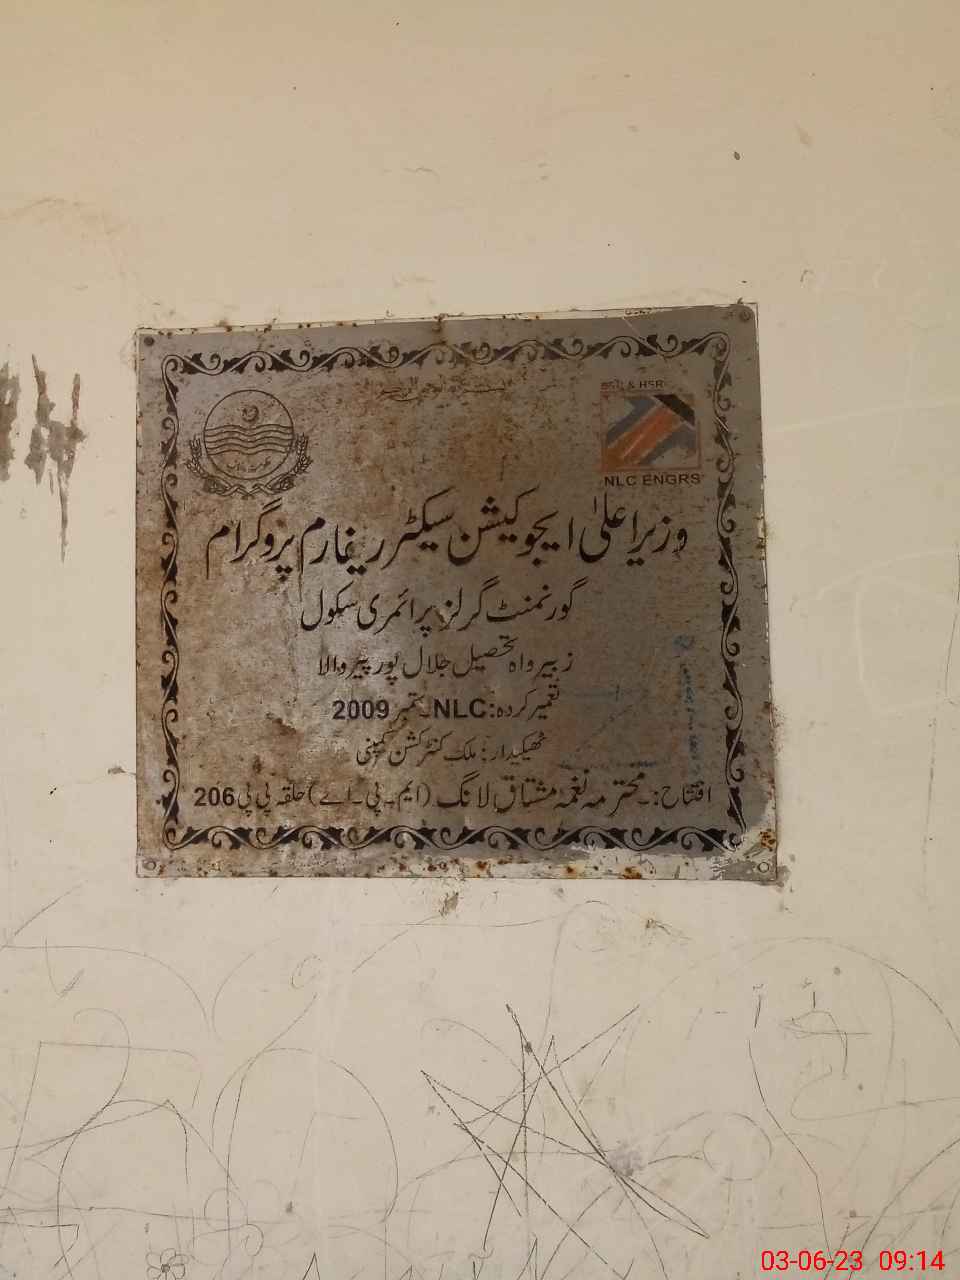 NLC ENGRS
وزیراعلیٰ ایجوکیشن سیکٹر ریفارم پروگرام
گورنمنٹ گرلز پرائمری سکول
زبیر واہ تحصیل جلال پور پیر والا
تعمیر کردہ: NLC۔ ستمبر 2009
ٹھیکیدار: ملک کنٹرکشن کمپنی
افتتاح:۔ محترمہ نغمہ مشتاق لانگ (ایم۔پی۔اے) حلقہ پی پی 206
03-06-23 09:14